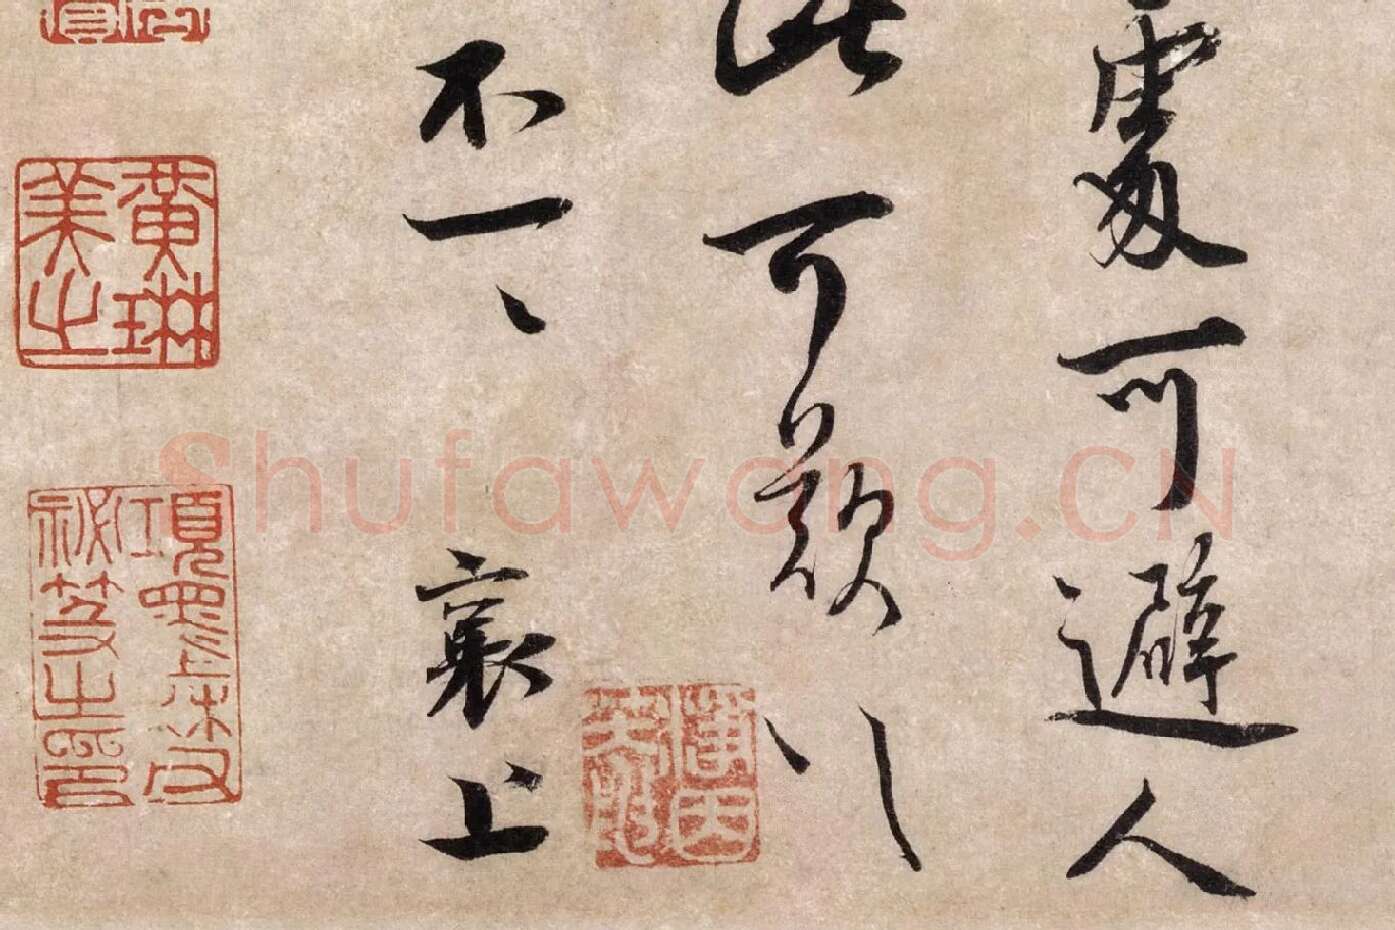 處可避人
此可歎〻
不一〻 襄上
黃琳
美之
項墨林父
祕笈之印
Shufawang.CN